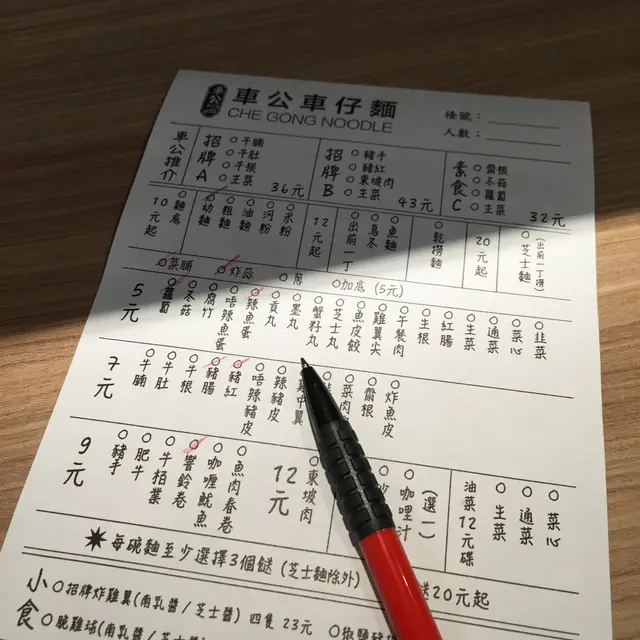 車公
車公車仔麵
CHE GONG NOODLE
檯號：
人數：
車公推介
招牌A
牛腩
牛肚
牛根
生菜
36元
招牌B
豬手
豬紅
東坡肉
生菜
43元
素食C
齋根
冬菇
蘿蔔
生菜
32元
10元起
麵底
幼麵
粗麵
油麵
河粉
米粉
12元起
出前一丁
烏冬
魚麵
乾撈麵
20元起
芝士麵
(出前一丁撈)
菜脯
炸蒜
蔥
加底 (5元)
5元
蘿蔔
冬菇
腐竹
唔辣魚蛋
辣魚蛋
貢丸
墨丸
蟹籽丸
芝士丸
魚皮餃
雞翼尖
午餐肉
生根
紅腸
生菜
通菜
菜心
韭菜
7元
牛腩
牛肚
牛根
豬腸
豬紅
唔辣豬皮
辣豬皮
中翼
菜肉
齋根
炸魚皮
9元
豬手
肥牛
牛柏葉
響鈴卷
咖喱魷魚
魚肉春卷
12元
東坡肉
汁
咖哩汁
(選一)
油菜12元碟
生菜
通菜
菜心
每碗麵至少選擇3個餸 (芝士麵除外)
餸20元起
小食
招牌炸雞翼(南乳醬/芝士醬) 四隻 23元
椒鹽豬
脆雞球(南乳醬/芝士醬)